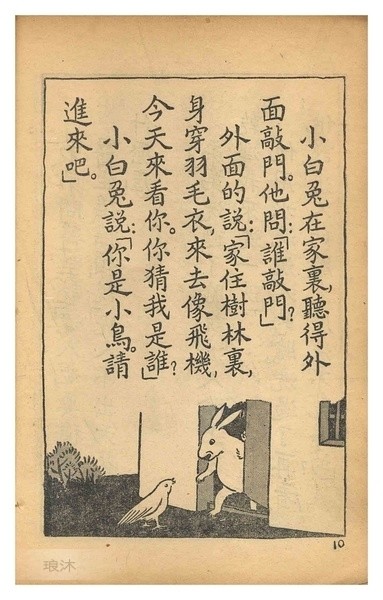 小白兔在家裏,聽得外
面敲門。他問:「誰敲門?」
外面的說:「家住樹林裏,
身穿羽毛衣,來去像飛機,
今天來看你。你猜我是誰?」
小白兔說:「你是小鳥。請
進來吧。」
10
琅沐